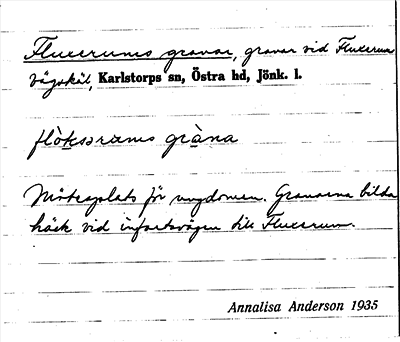 Fluxerums granar, granar vid Fluxerum
vägskäl, Karlstorps sn, Östra hd, Jönk. l.
flòksərums gràna
Mötesplats för ungdomen. Granarna bilda
häck vid infartsvägen till Fluxerum.
Annalisa Anderson 1935